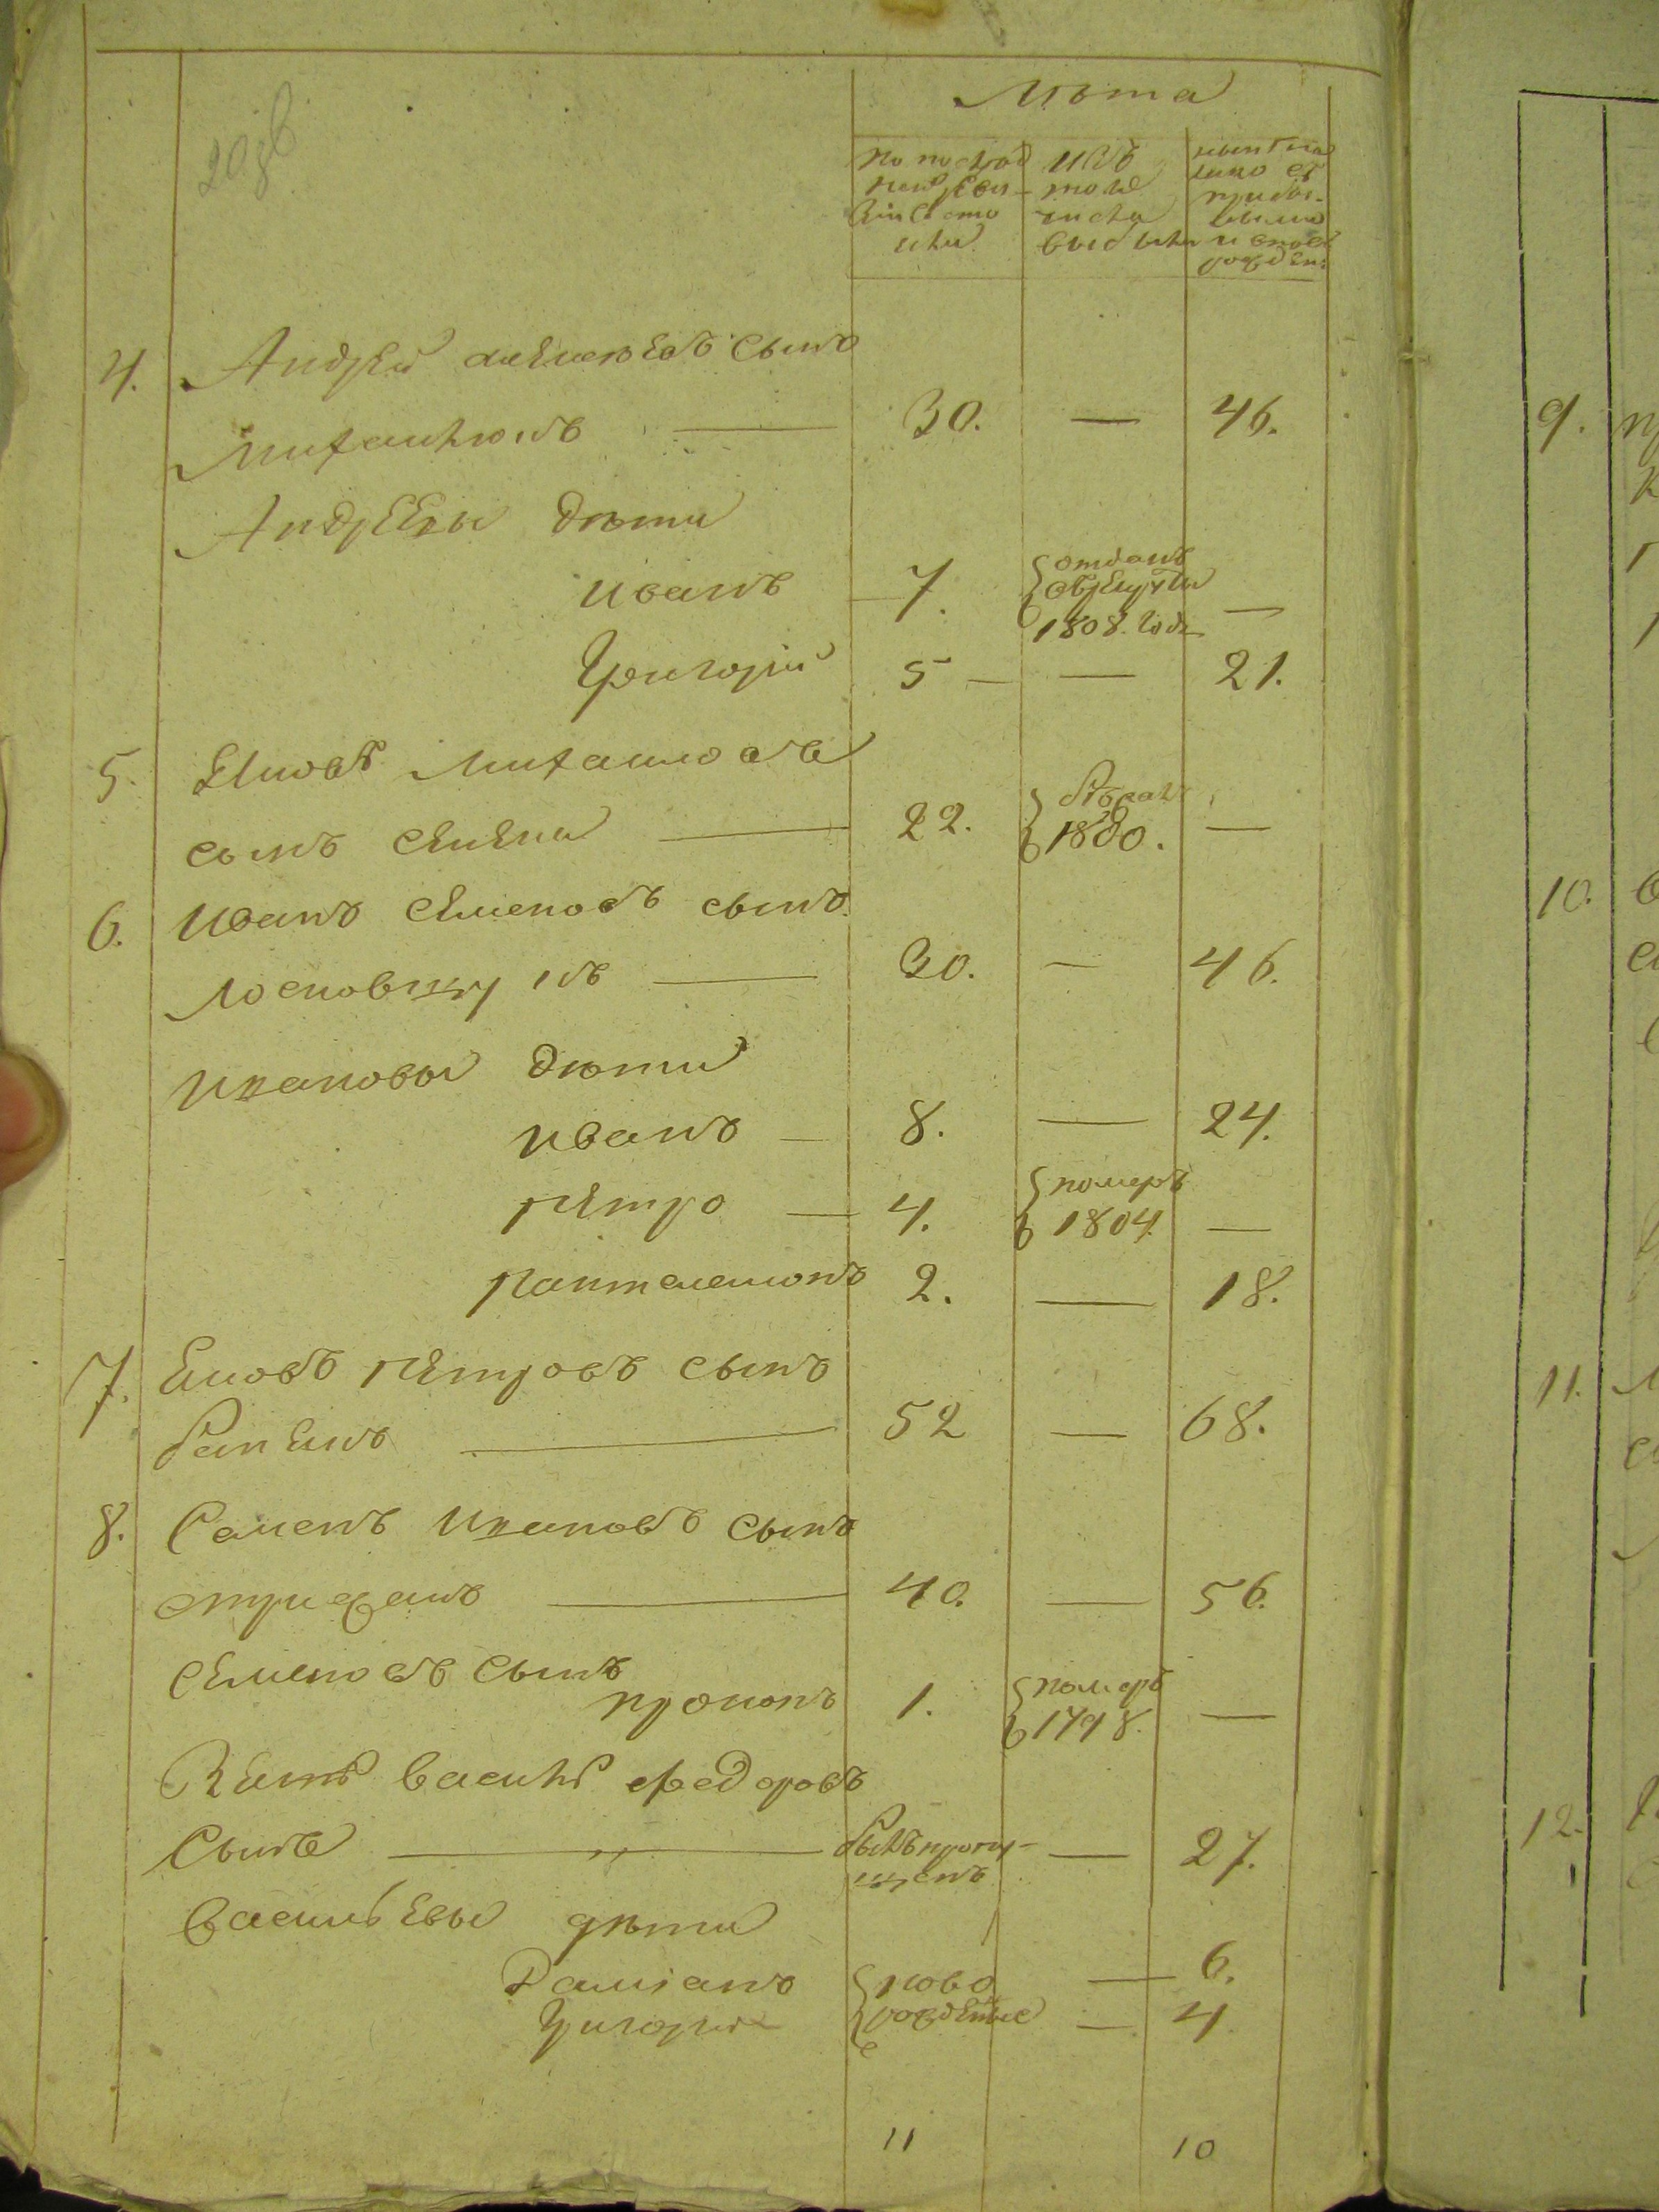 Лѣта
По послѣд
ней реви
зіи состо
яли
изъ
того
числа
выбыли
нынѣ на
лицо съ
прибы
лыми
и вновь
рожден:
4. Андрей Алексѣевъ сынъ
Михалкюкъ — 30. — 46.
Андреевы дѣти
Иванъ 7. отданъ
в рекруты
1808. года —
Григорій 5 — — 21.
5. Яковъ Михайловъ
сынъ 22. бѣжал
1800. —
6. Иванъ Семеновъ сынъ
— 30. — 46.
Ивановы дѣти
Иванъ — 8. — 24.
Петро — 4. померъ
1804. —
Пантелеймонъ 2. — 18.
7. Яковъ Петровъ сынъ
— 52 — 68.
8. Семенъ Ивановъ сынъ
Стрижакъ — 40. — 56.
Семеновъ сынъ
Прокопъ 1. померъ
1798. —
Зять Василь Федоровъ
сынъ — былъ пропу-
щенъ — 27.
Васильевы дѣти
Даміанъ ново — 6.
Григорій рожденые — 4.
11 10
9.
10.
11.
12.